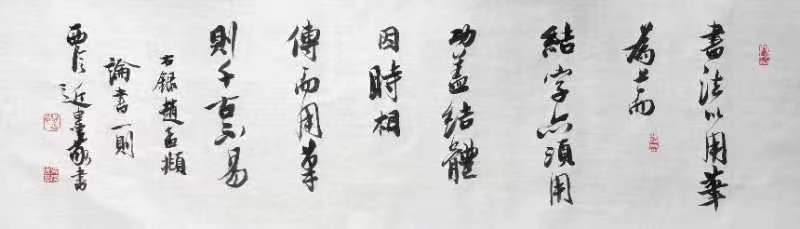 書法以用筆
為上而
結字亦須用
功盖結體
因時相
傳而用筆
則千古不易
右録趙孟頫
論書一則
近墨家書